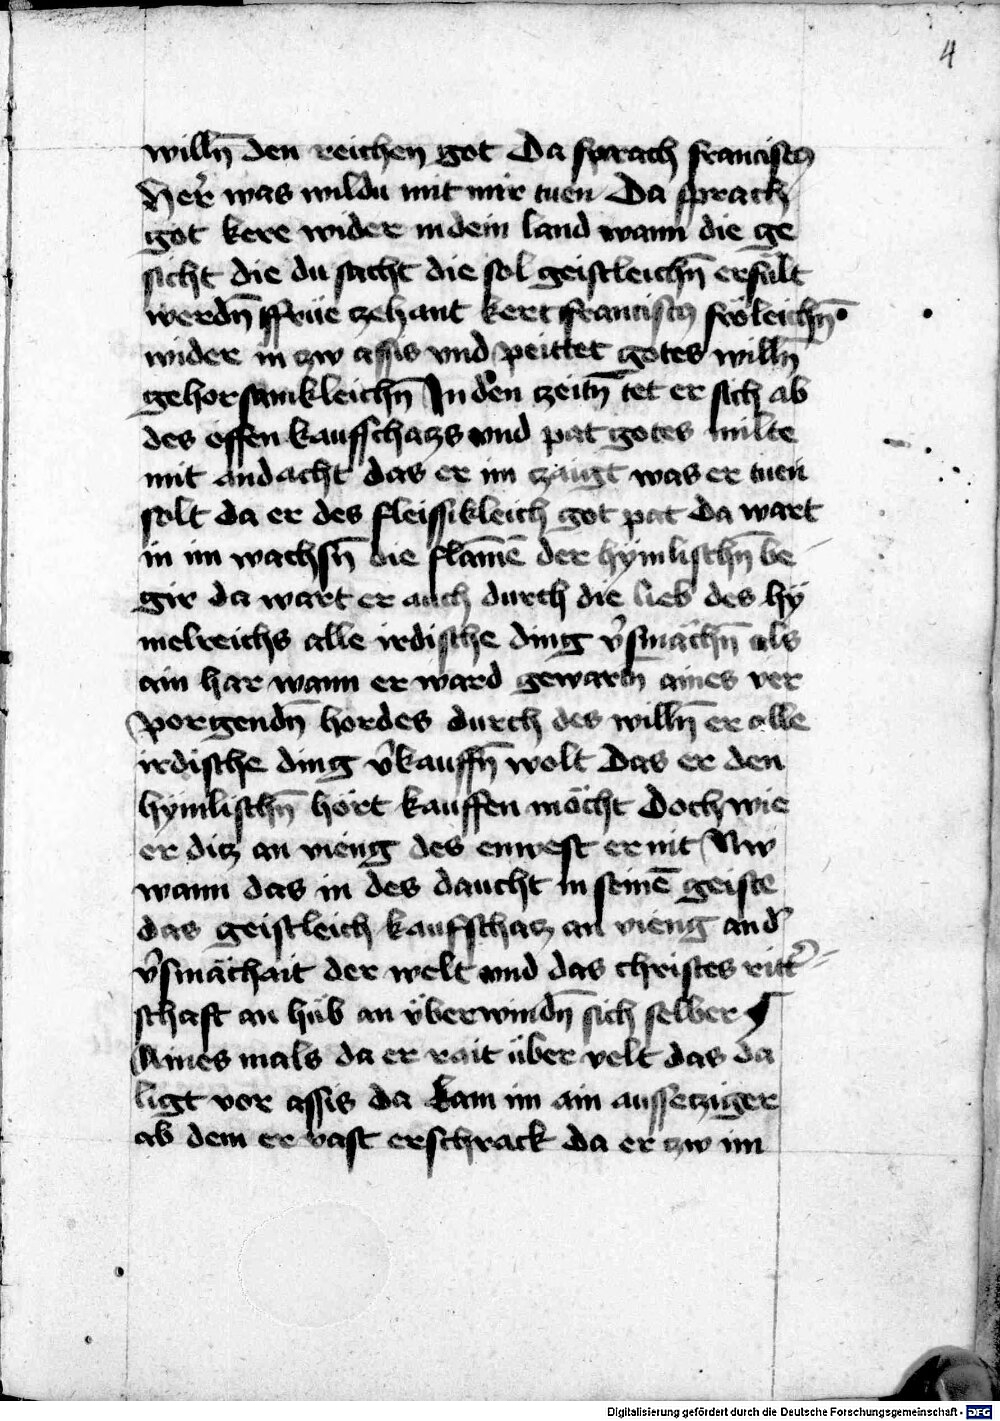 4
willn̄ den reichen got Da sprach franciscꝰ
Her̄ was wildu mit mir tuen Da sprach
got kere wider in dein land wann die ge
sicht die du sacht die sol geistleichn̄ erfült
werdn̄ ffrüe zehant kert franciscꝰ fröleichn̄
wider in zw assis vnd peittet gotes willn̄
gehorsamkleichn̄ In den zeitn̄ tet er sich ab
des offen kauffschatzs vnd pat gotes milte
mit andacht das er im tzaigt was er tuen
solt da er des fleissikleich got pat Da wart
in im wachsn̄ die flam̄e der hymlischn̄ be
gir da wart er auch durch die lieb des hy
melreichs alle irdische ding v̄smächn̄ als
ain har wann er ward gewarn̄ aines ver
porgendn̄ hordes durch des willn̄ er alle
irdische ding v̄kauffn̄ wolt Das er den
hymlischn̄ hört kauffen möcht Doch wie
er ditz an vieng des enwest er nit Nw
wann das in des daucht in seinē geiste
das geistleich kaufschatz an vieng an d̄
v̄smächait der welt vnd das christes ritt̄
schaft an hüb an v̈berwindn̄ sich selber
Aines mals da er rait über velt das da
ligt vor assis da kam im ain aussetziger
ab dem er vast erschrack da er zw im
Digitalisierung gefördert durch die Deutsche Forschungsgemeinschaft - DFG